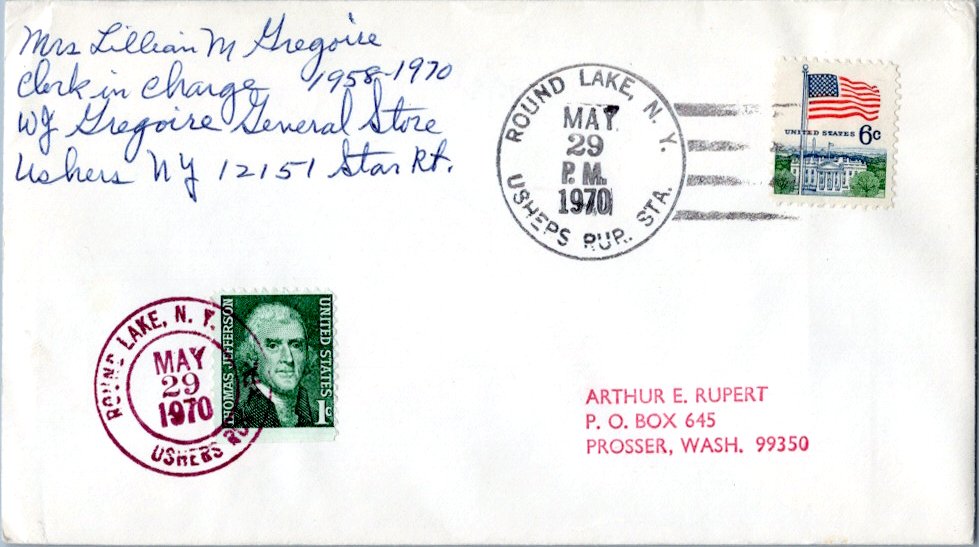 Mrs Lillian M Gregoire
Clerk in charge 1958-1970
WJ Gregoire General Store
Ushers NY 12151 Star Rt.
ROUND LAKE, N. Y.
MAY
29
P.M.
1970
USHERS RUR. STA.
UNITED STATES 6c
ROUND LAKE, N. Y.
MAY
29
1970
USHERS RU
THOMAS JEFFERSON
UNITED STATES
1c
ARTHUR E. RUPERT
P. O. BOX 645
PROSSER, WASH. 99350